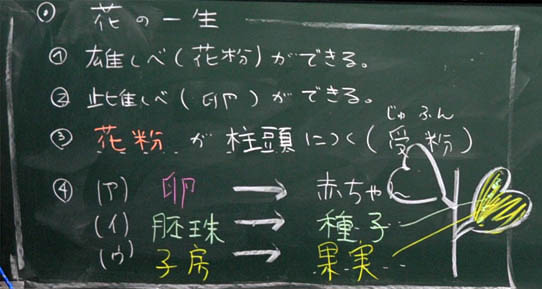 ⊙ 花の一生
① 雄しべ(花粉)ができる。
② 雌しべ(卵)ができる。
じゅふん
③ 花粉が柱頭につく(受粉)
④ (ア) 卵 → 赤ちゃん
(イ) 胚珠 → 種子
(ウ) 子房 → 果実